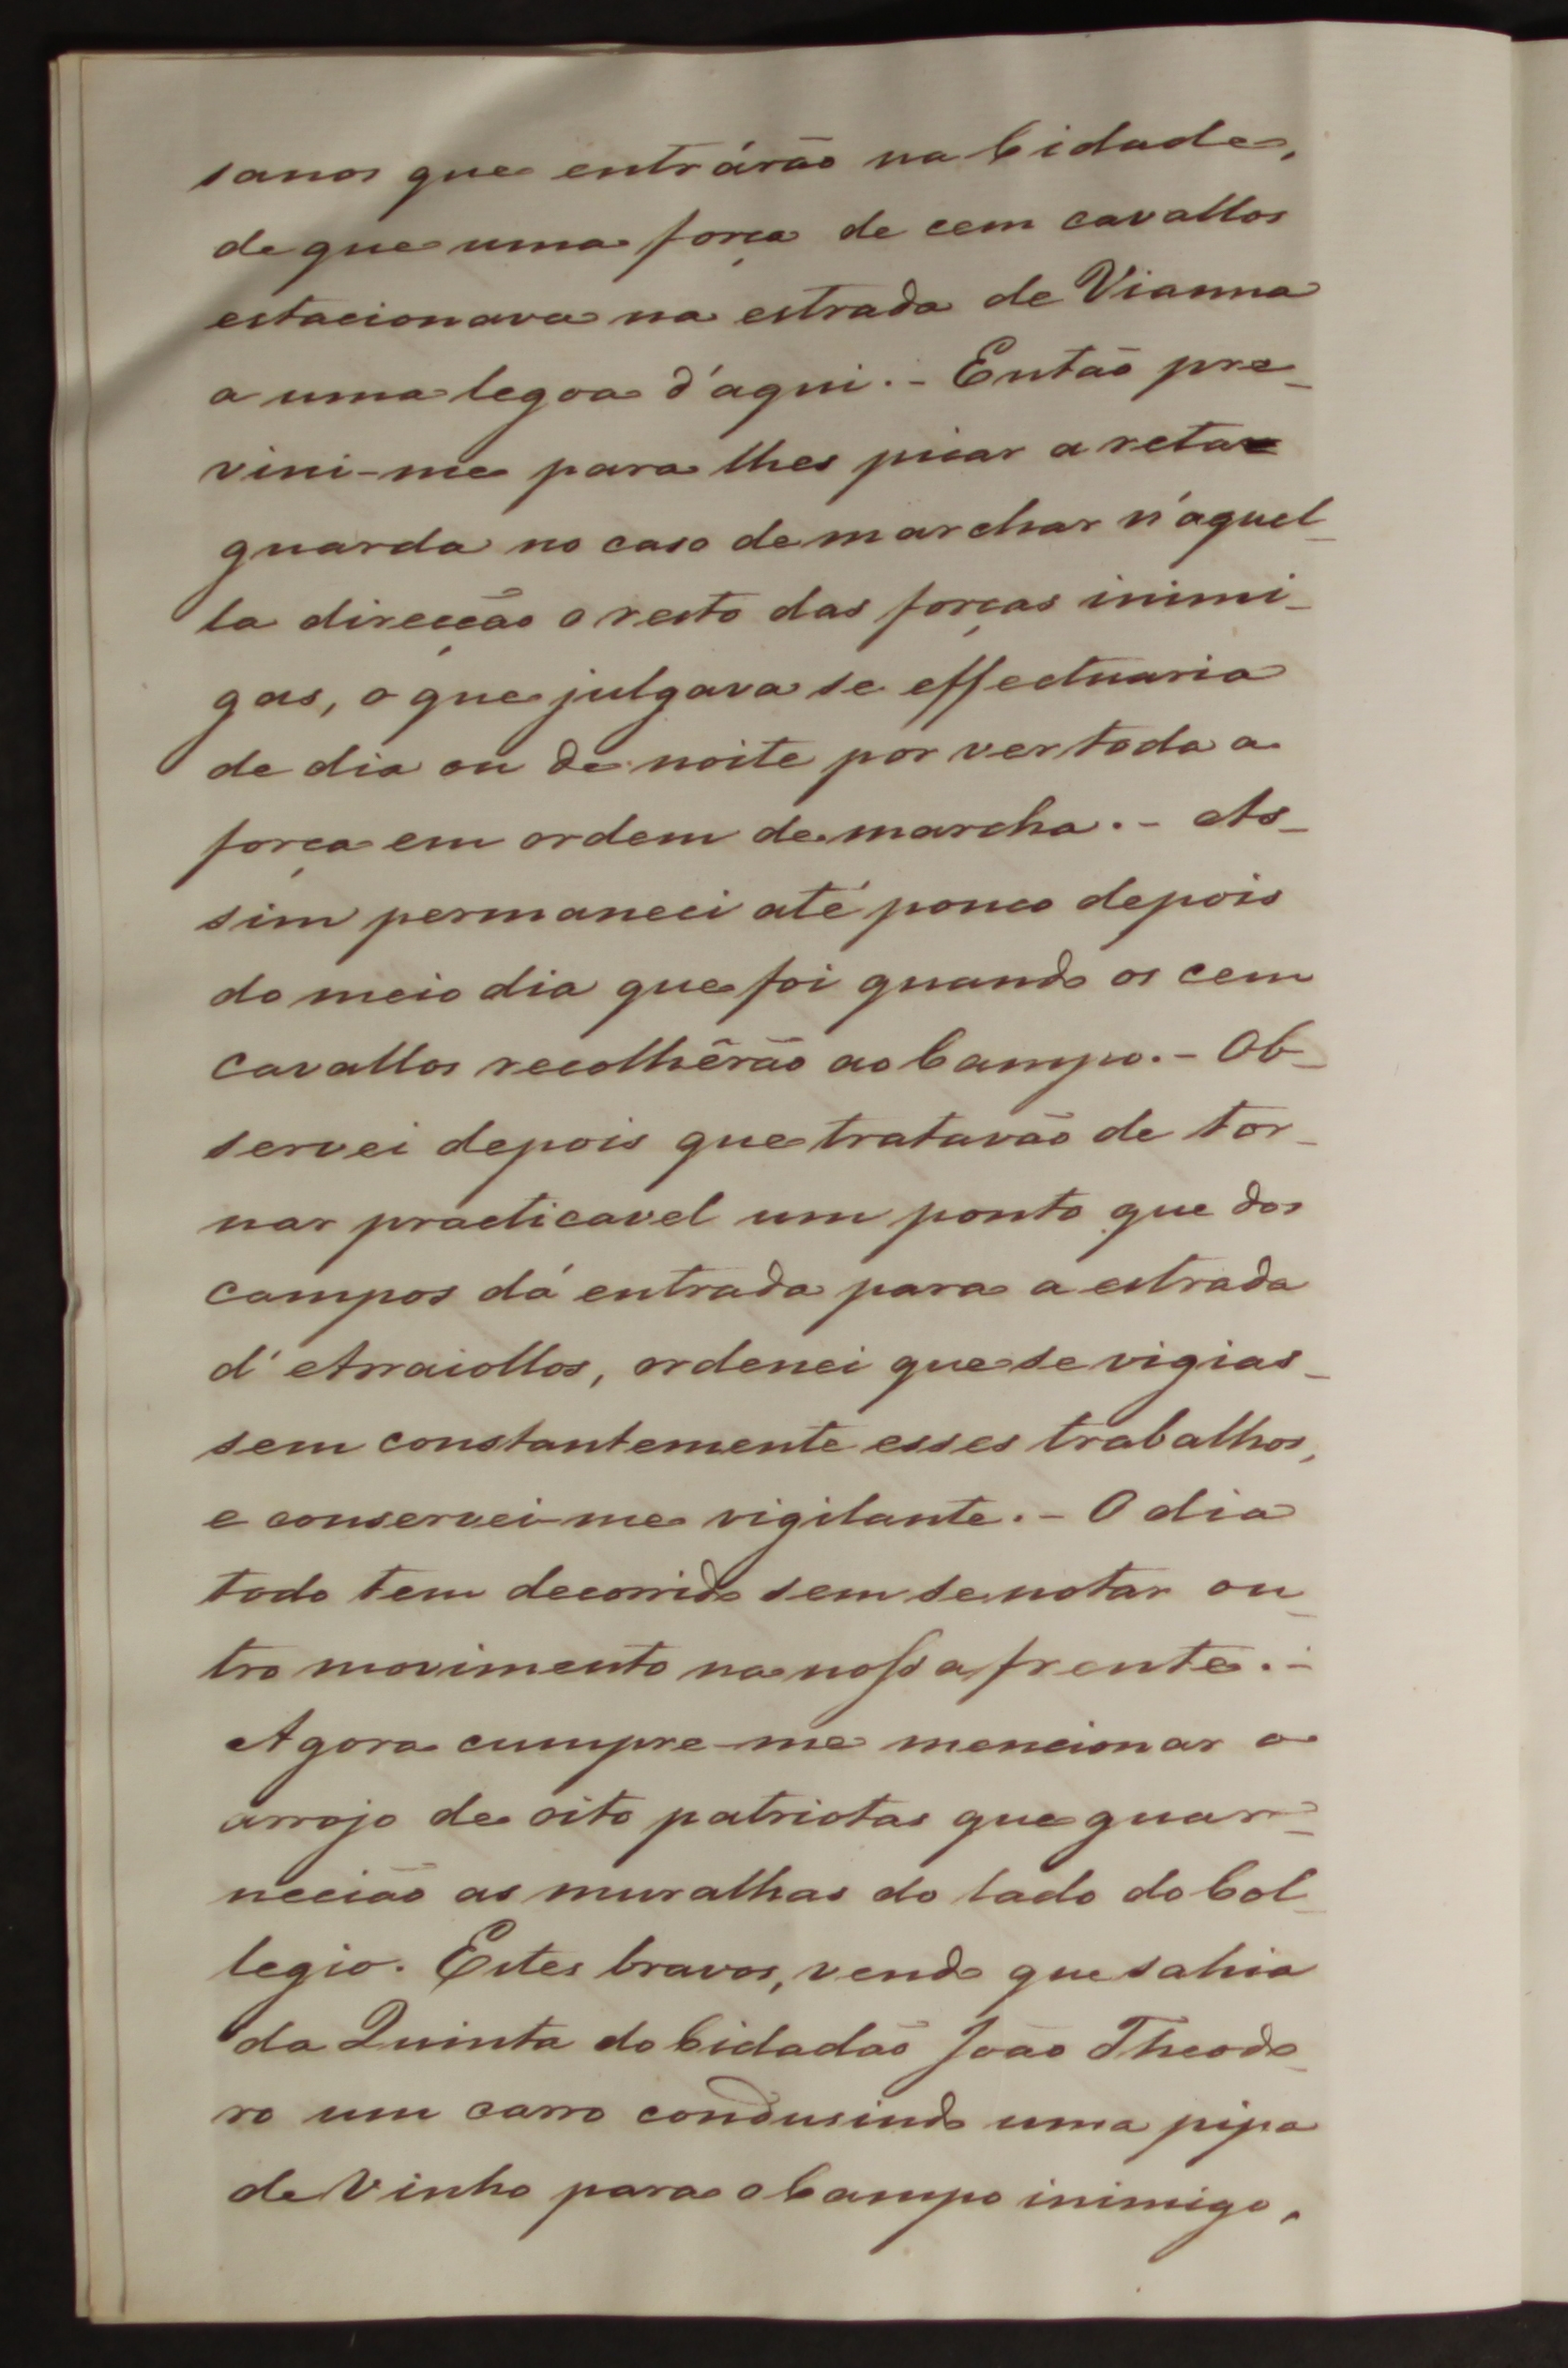 sanos que entrárão na Cidade,
de que uma força de cem cavallos
estacionava na estrada de Vianna
a uma legoa d'aqui. - Então pre-
vini-me para lhes picar a reta
guarda no caso de marchar n'aquel-
la direcção o resto das forças inimi-
gas, o que julgava se effectuaria
de dia ou de noite por ver toda a
força em ordem de marcha. - As-
sim permaneci até pouco depois
do meio dia que foi quando os cem
cavallos recolhêrão ao Campo. - Ob-
servei depois que tratavão de tor-
nar practicavel um ponto que dos
campos dá entrada para a estrada
d'Arraiollos, ordenei que se vigias-
sem constantemente esses trabalhos,
e conservei-me vigilante. - O dia
todo tem decorrido sem se notar ou-
tro movimento na nossa frente. -
Agora cumpre-me mencionar o
arrojo de oito patriotas que guar-
necião as muralhas do lado do Col-
legio. Estes bravos, vendo que sahia
da Quinta do Cidadão João Theodo-
ro um carro condusindo uma pipa
de Vinho para o Campo inimigo,